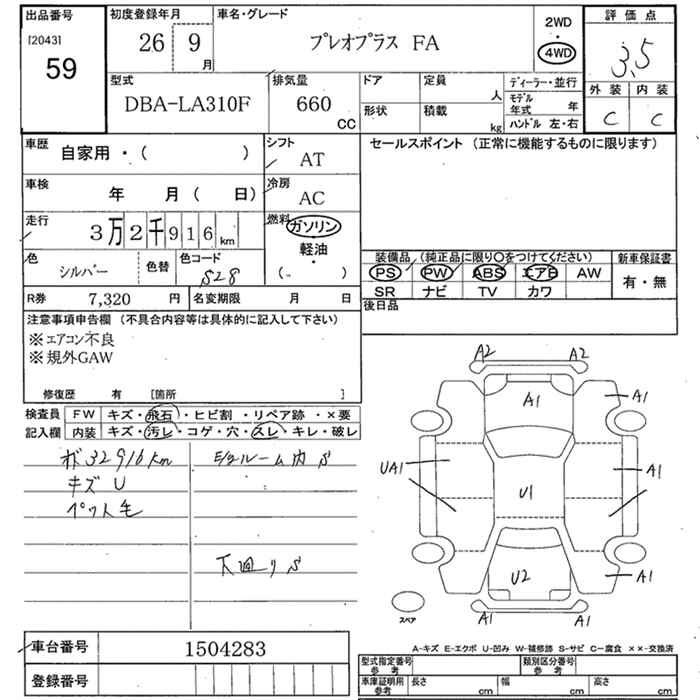 出品番号
[2043]
59
初度登録年月
26 9月
車名・グレード
プレオプラス FA
2WD
・
4WD
評価点
3.5
外装 内装
C C
型式
DBA-LA310F
排気量
660
CC
ドア
定員
人
形状
積載
kg
ディーラー・並行
モデル年式 年
ハンドル 左・右
車歴
自家用・( )
シフト
AT
車検
年 月( 日)
冷房
AC
走行
3万2千916km
燃料
ガソリン
軽油
・
( )
色
シルバー
色替
色コード
S28
R券 7,320 円
名変期限 月 日
セールスポイント (正常に機能するものに限ります)
装備品 (純正品に限り〇をつけてください)
PS PW ABS エアB AW
SR ナビ TV カワ
新車保証書
有・無
後日品
注意事項申告欄 (不具合内容等は具体的に記入して下さい)
※エアコン不良
※規外GAW
修復歴 有 [箇所 ]
検査員
記入欄
FW キズ・飛石・ヒビ割・リペア跡・×要
内装 キズ・汚レ・コゲ・穴・スレ・キレ・破レ
32916km
キズ U
ペット毛
ルーム内 S
下廻り S
A2 A2
A1 A1
UA1 A1
U1
U2 A1
A1 A1
スペア
車台番号 1504283
登録番号
A-キズ E-エクボ U-凹み W-補修跡 S-サビ C-腐食 ××-交換済
型式指定番号
参考
類別区分番号
参考
車庫証明用
参考
長さ cm
幅 cm
高さ cm